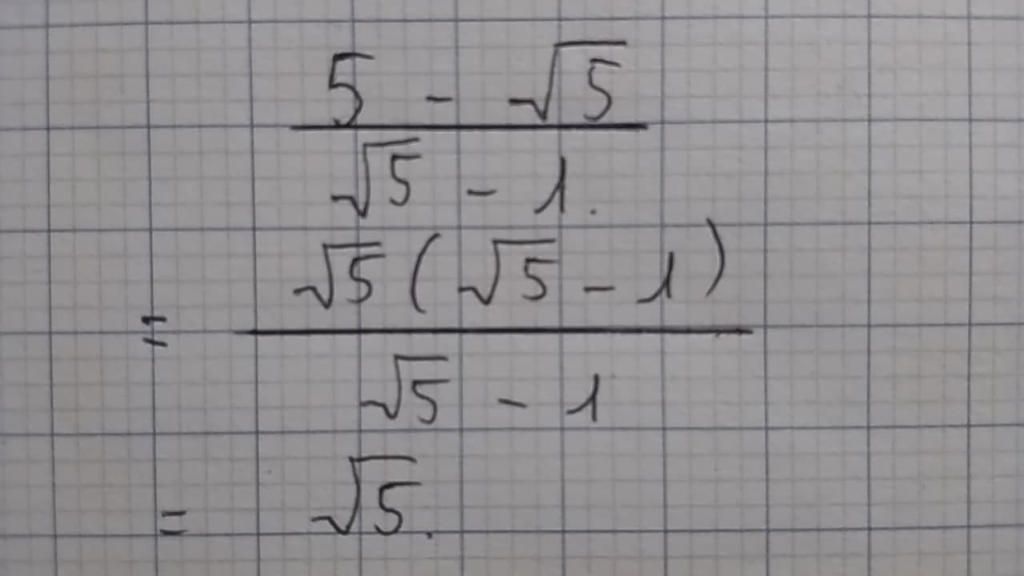 5 - √5
√5 - 1.
= √5 ( √5 - 1 )
√5 - 1
= √5.